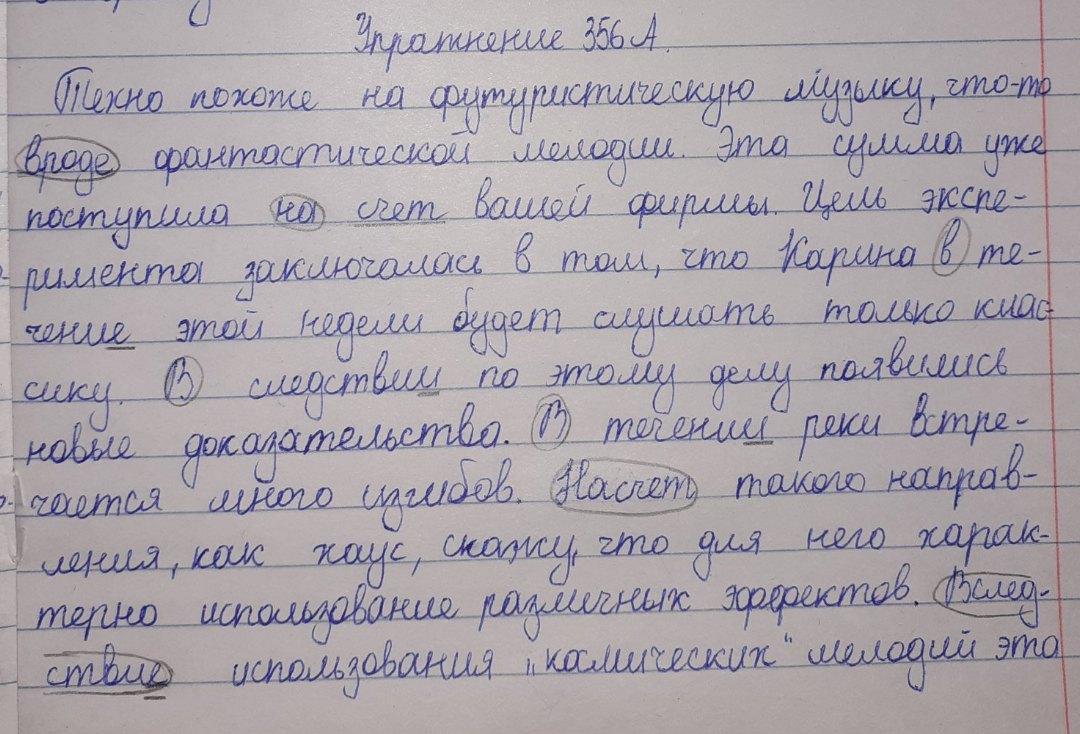 Упражнение 356А.
Техно похоже на футуристическую музыку, что-то
вроде фантастической мелодии. Эта сумма уже
поступила на счет вашей фирмы. Цель экспе-
римента заключалась в том, что Карина в те-
чение этой недели будет слушать только клас-
сику. В следствии по этому делу появились
новые доказательства. В течении реки встре-
чается много изгибов. Насчет такого направ-
ления, как хаус, скажу, что для него харак-
терно использование различных эффектов. Вслед-
ствие использования „космических" мелодий эта